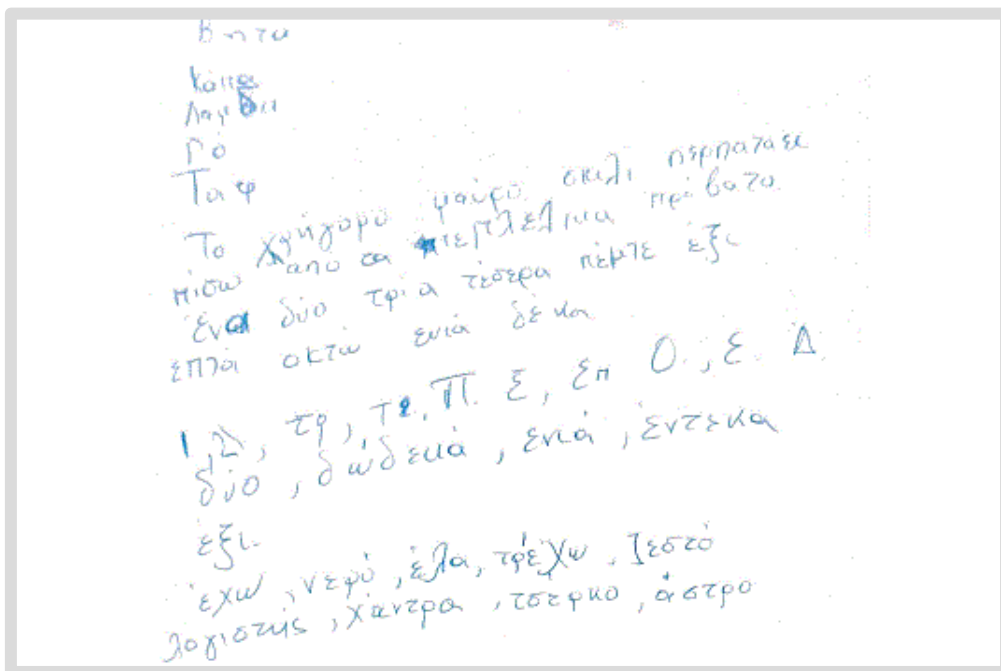 Βητα
Κάπα
Λαμδα
Ρό
Ταφ
Το γρήγορο μαύρο σκιλι περπαταει
πίσω από τα τεμπλελικα πρόβατα
ένα δύο τρία τέσερα πέμτε έξι
επτά οκτώ ενιά δέκα
1, Δ, τρ, τε, Π. Ε, Επ Ο., Ε. Δ
δύο, δωδεκά, ενιά, έντεκα
έξι.
έχω, νερό, έλα, τρέχω, ζεστό
λογιστής, χάντρα, τσέρκο, άστρο